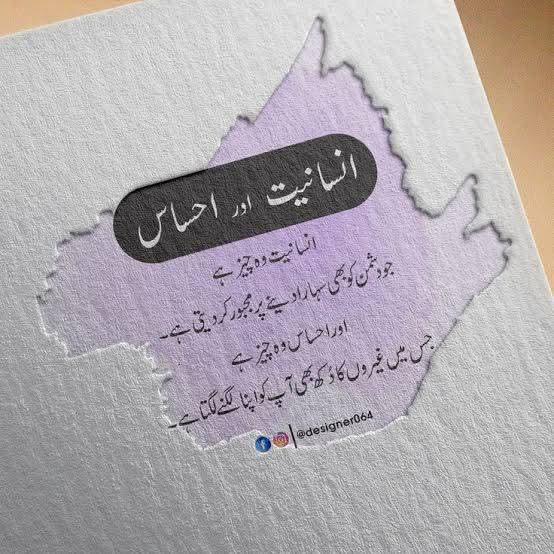 انسانیت اور احساس
انسانیت وہ چیز ہے
جو دشمن کو بھی سہارا دینے پر مجبور کر دیتی ہے۔
اور احساس وہ چیز ہے
جس میں غیروں کا دُکھ بھی آپ کو اپنا لگنے لگتا ہے۔
@designer064